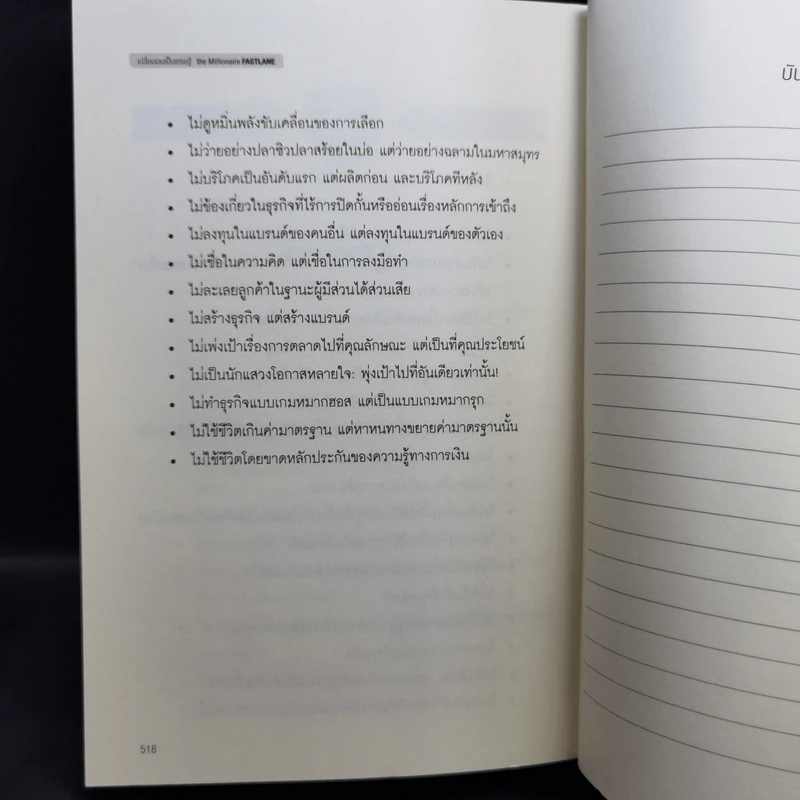 เปลี่ยนคนเป็นเศรษฐี the Millionaire FASTLANE
• ไม่ดูหมิ่นพลังขับเคลื่อนของการเลือก
• ไม่ว่ายอย่างปลาซิวปลาสร้อยในบ่อ แต่ว่ายอย่างฉลามในมหาสมุทร
• ไม่บริโภคเป็นอันดับแรก แต่ผลิตก่อน และบริโภคทีหลัง
• ไม่ข้องเกี่ยวในธุรกิจที่ไร้การปิดกั้นหรืออ่อนเรื่องหลักการเข้าถึง
• ไม่ลงทุนในแบรนด์ของคนอื่น แต่ลงทุนในแบรนด์ของตัวเอง
• ไม่เชื่อในความคิด แต่เชื่อในการลงมือทำ
• ไม่ละเลยลูกค้าในฐานะผู้มีส่วนได้ส่วนเสีย
• ไม่สร้างธุรกิจ แต่สร้างแบรนด์
• ไม่เพ่งเป้าเรื่องการตลาดไปที่คุณลักษณะ แต่เป็นที่คุณประโยชน์
• ไม่เป็นนักแสวงโอกาสหลายใจ: พุ่งเป้าไปที่อันเดียวเท่านั้น!
• ไม่ทำธุรกิจแบบเกมหมากฮอส แต่เป็นแบบเกมหมากรุก
• ไม่ใช้ชีวิตเกินค่ามาตรฐาน แต่หาหนทางขยายค่ามาตรฐานนั้น
• ไม่ใช้ชีวิตโดยขาดหลักประกันของความรู้ทางการเงิน
518